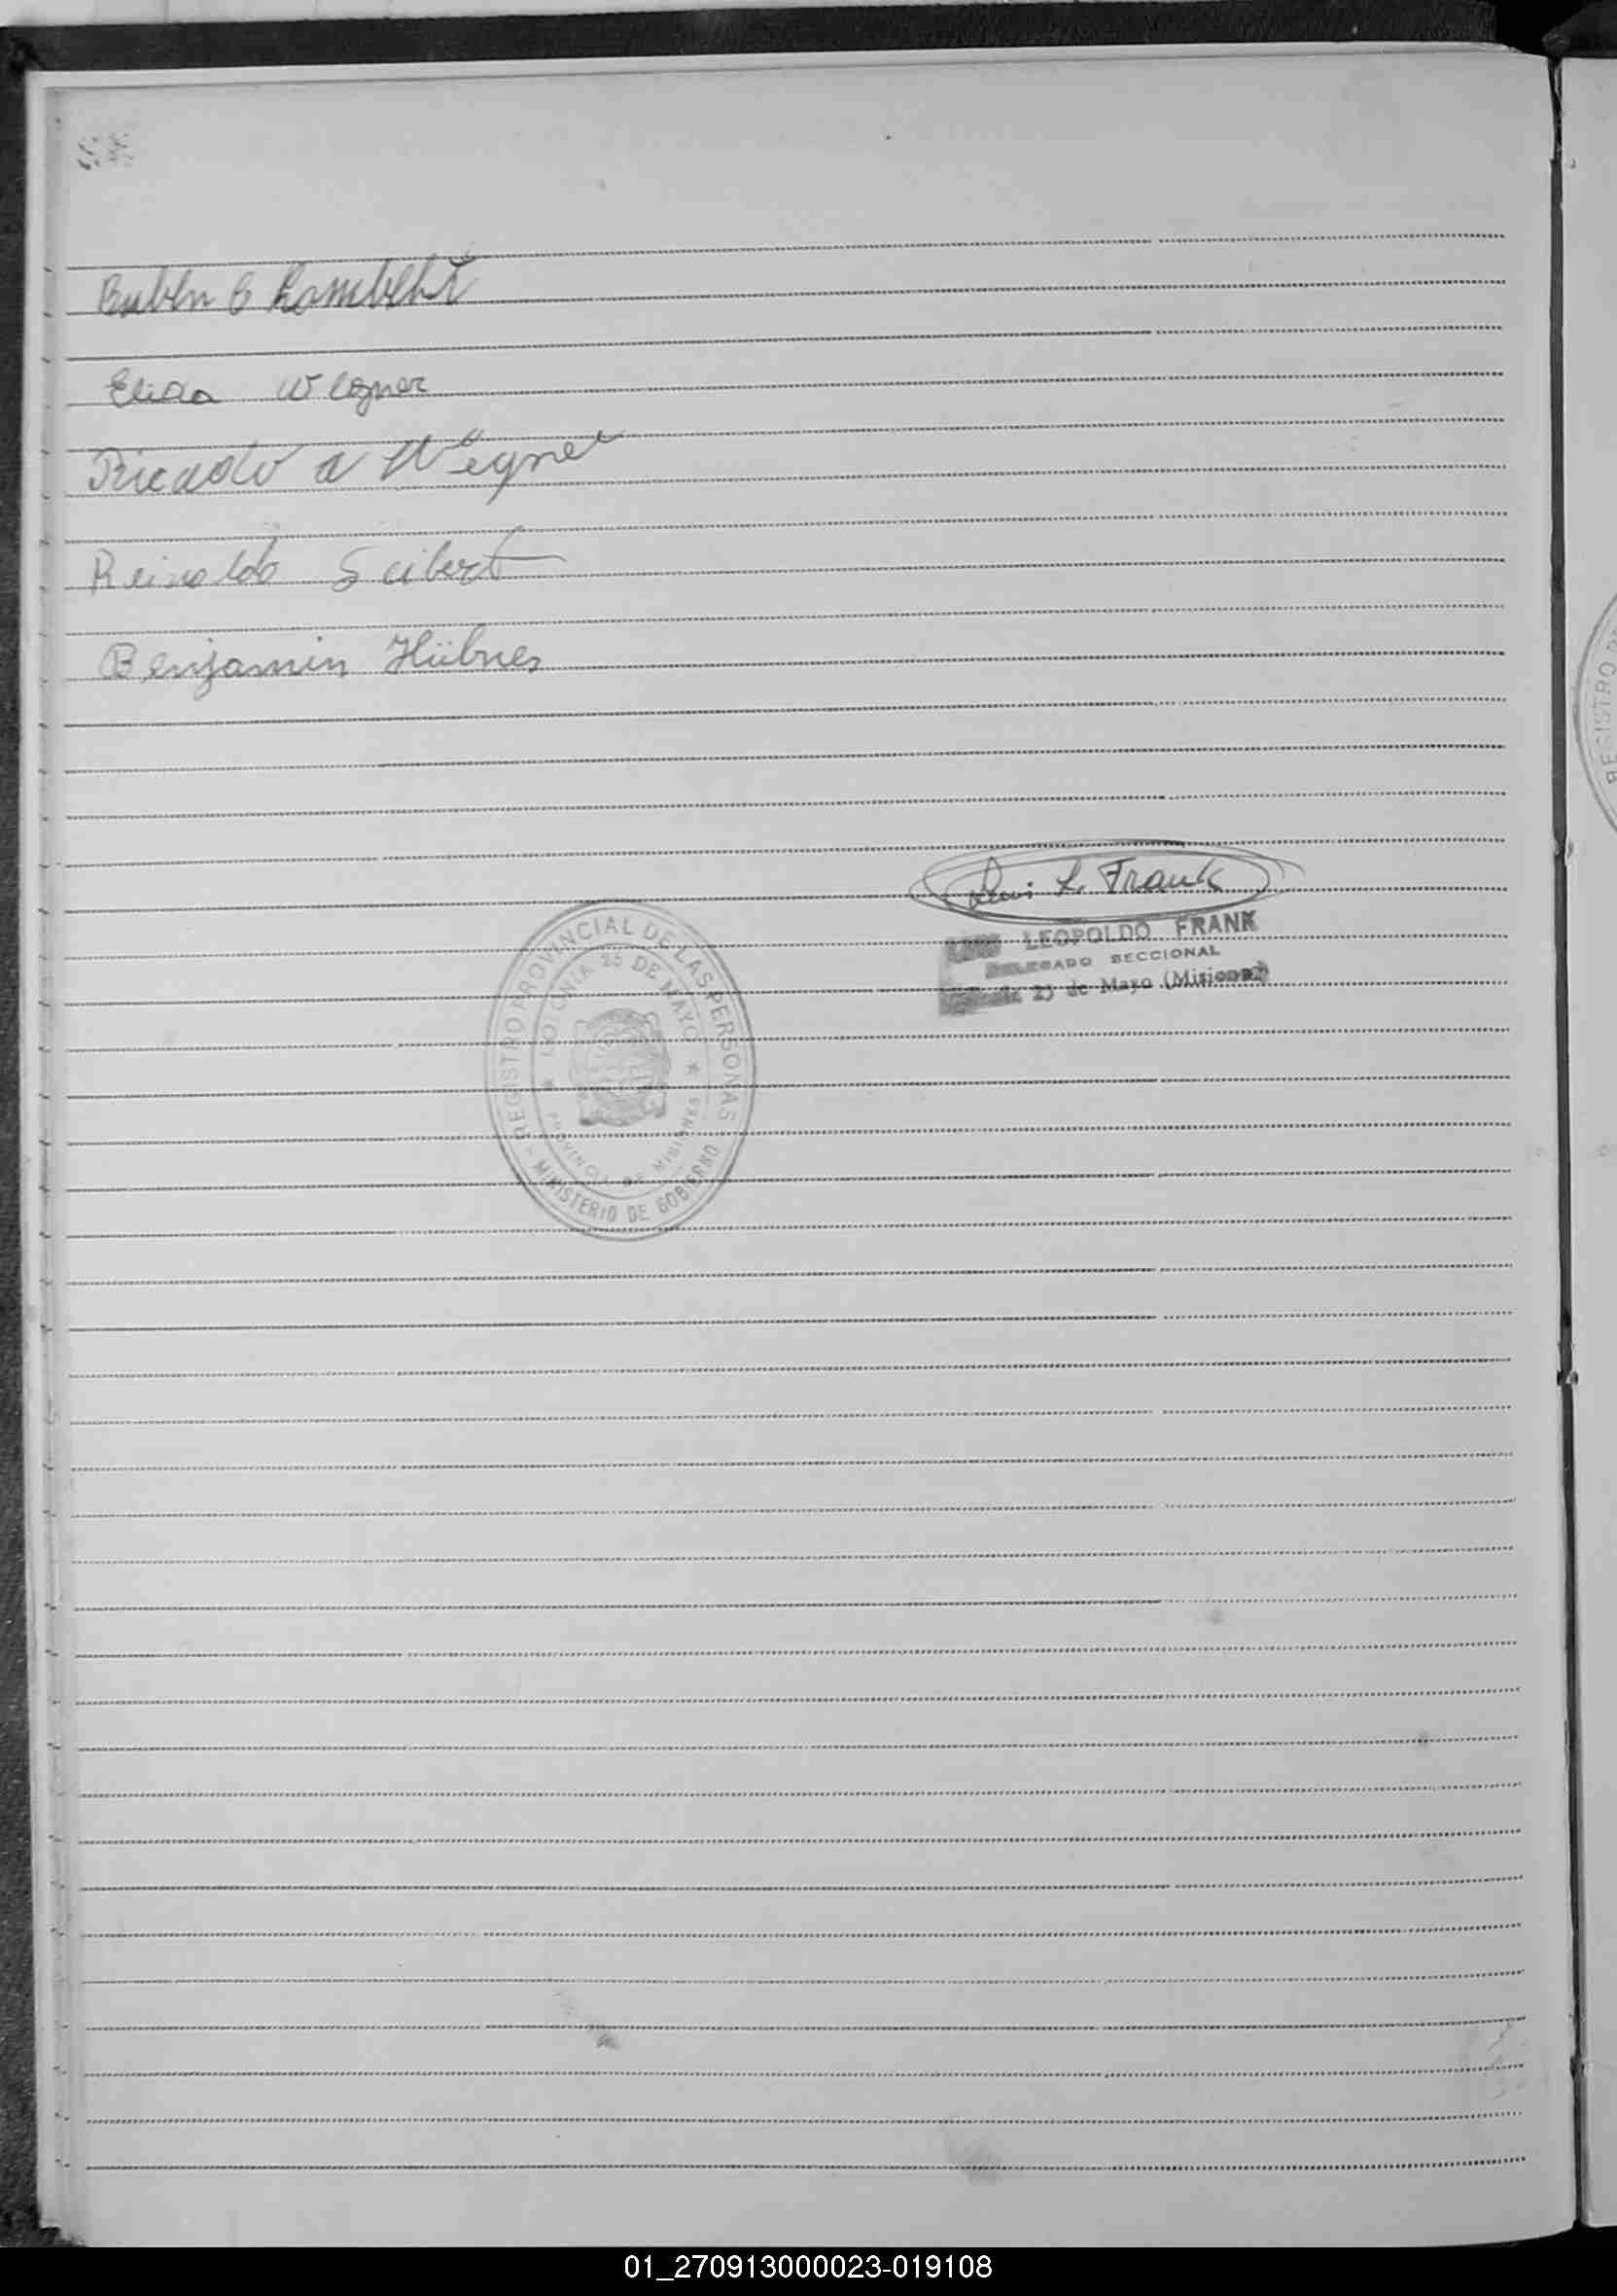 Ruben E Lambeht
Elida Wegner
Ricardo A Wegner
Reinaldo Seibert
Benjamin Hübner
Luis L. Frank
LUIS LEOPOLDO FRANK
DELEGADO SECCIONAL
Colonia 25 de Mayo (Misiones)
REGISTRO PROVINCIAL DE LAS PERSONAS
- MINISTERIO DE GOBIERNO
COLONIA 25 DE MAYO
PROVINCIA DE MISIONES
REGISTRO
01_270913000023-019108